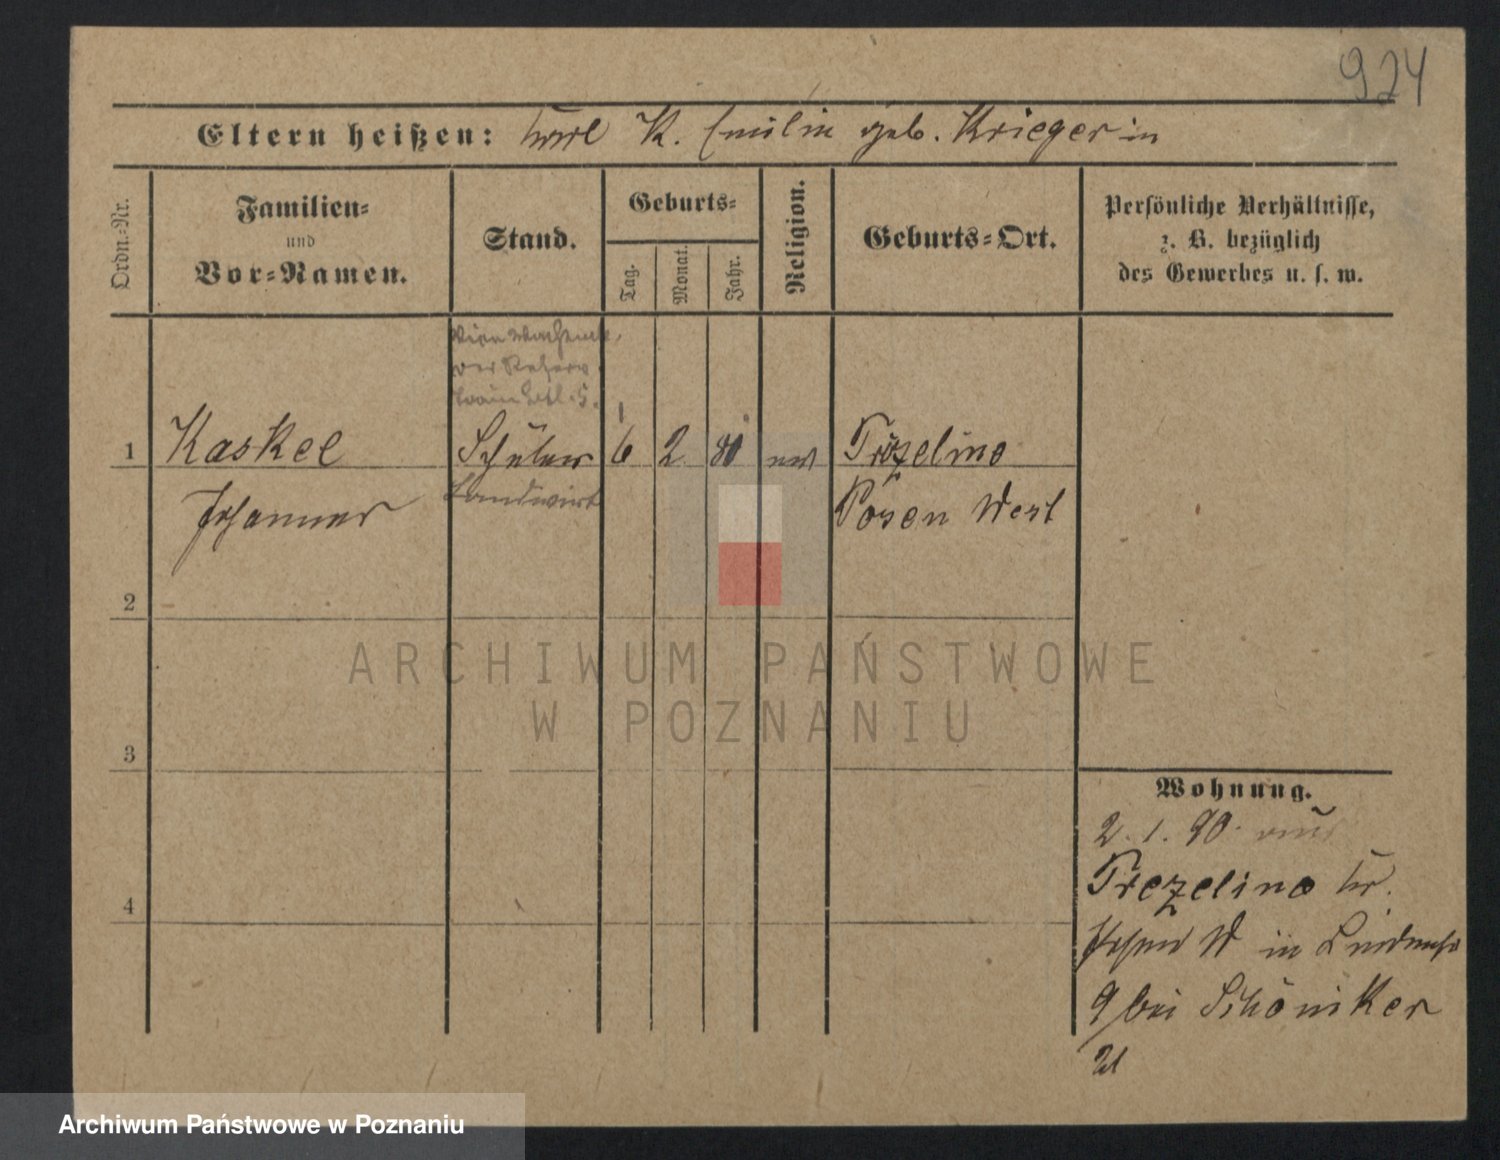 924
Eltern heißen: Karl K. Emilie geb. Kriegerin
Ordn.-Nr.
Familien-
und
Vor-Namen.
Stand.
Geburts-
Tag.
Monat.
Jahr.
Religion.
Geburts-Ort.
Persönliche Verhältnisse,
z. B. bezüglich
des Gewerbes u. s. w.
der Reserv
1
Kaskel
Schüler
6
2
80
Trzelino
Johannes
Landwirt
Posen West
2
3
4
Wohnung.
2. 1. 90. aus
Trzelino Kr.
Posen W in
9 bei Schöniker
ARCHIWUM PAŃSTWOWE
W POZNANIU
Archiwum Państwowe w Poznaniu